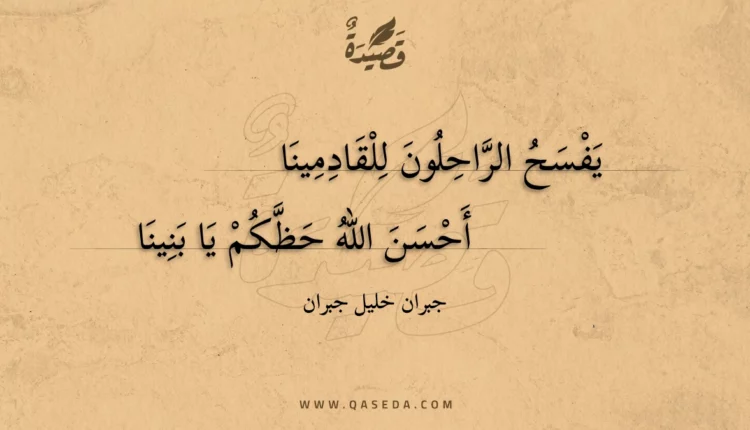 قَصِيْدَةٌ
يَفْسَحُ الرَّاحِلُونَ لِلْقَادِمِينَا
أَحْسَنَ اللهُ حَظَّكُمْ يَا بَنِينَا
جبران خليل جبران
WWW.QASEDA.COM